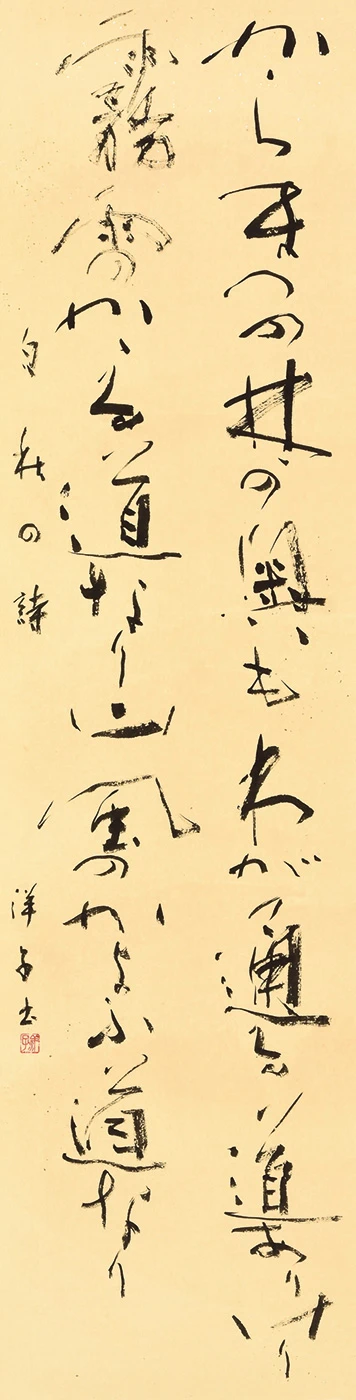 からまつの林の奥もわが通る道ありけり
霧雨のかかる道なり山風のかよふ道なり
白秋の詩
洋子書